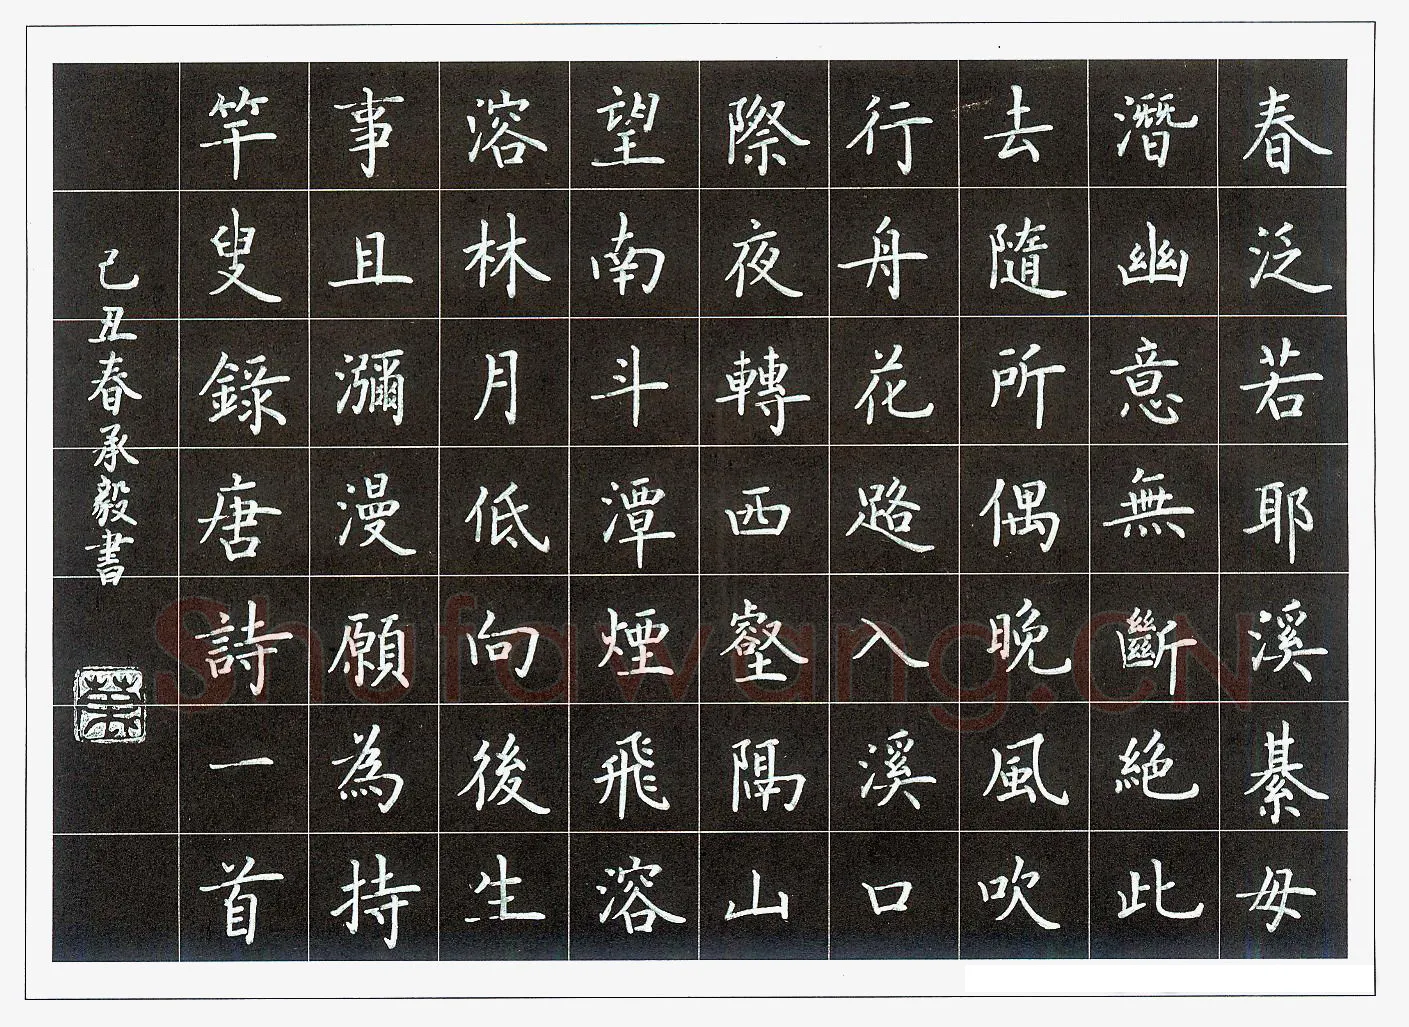 春泛若耶溪綦毋
潛幽意無斷絕此
去隨所偶晚風吹
行舟花路入溪口
際夜轉西壑隅山
望南斗潭煙飛溶
溶林月低向後生
事且瀰漫願為持
竿叟錄唐詩一首
己丑春承毅書
Shufawang.CN